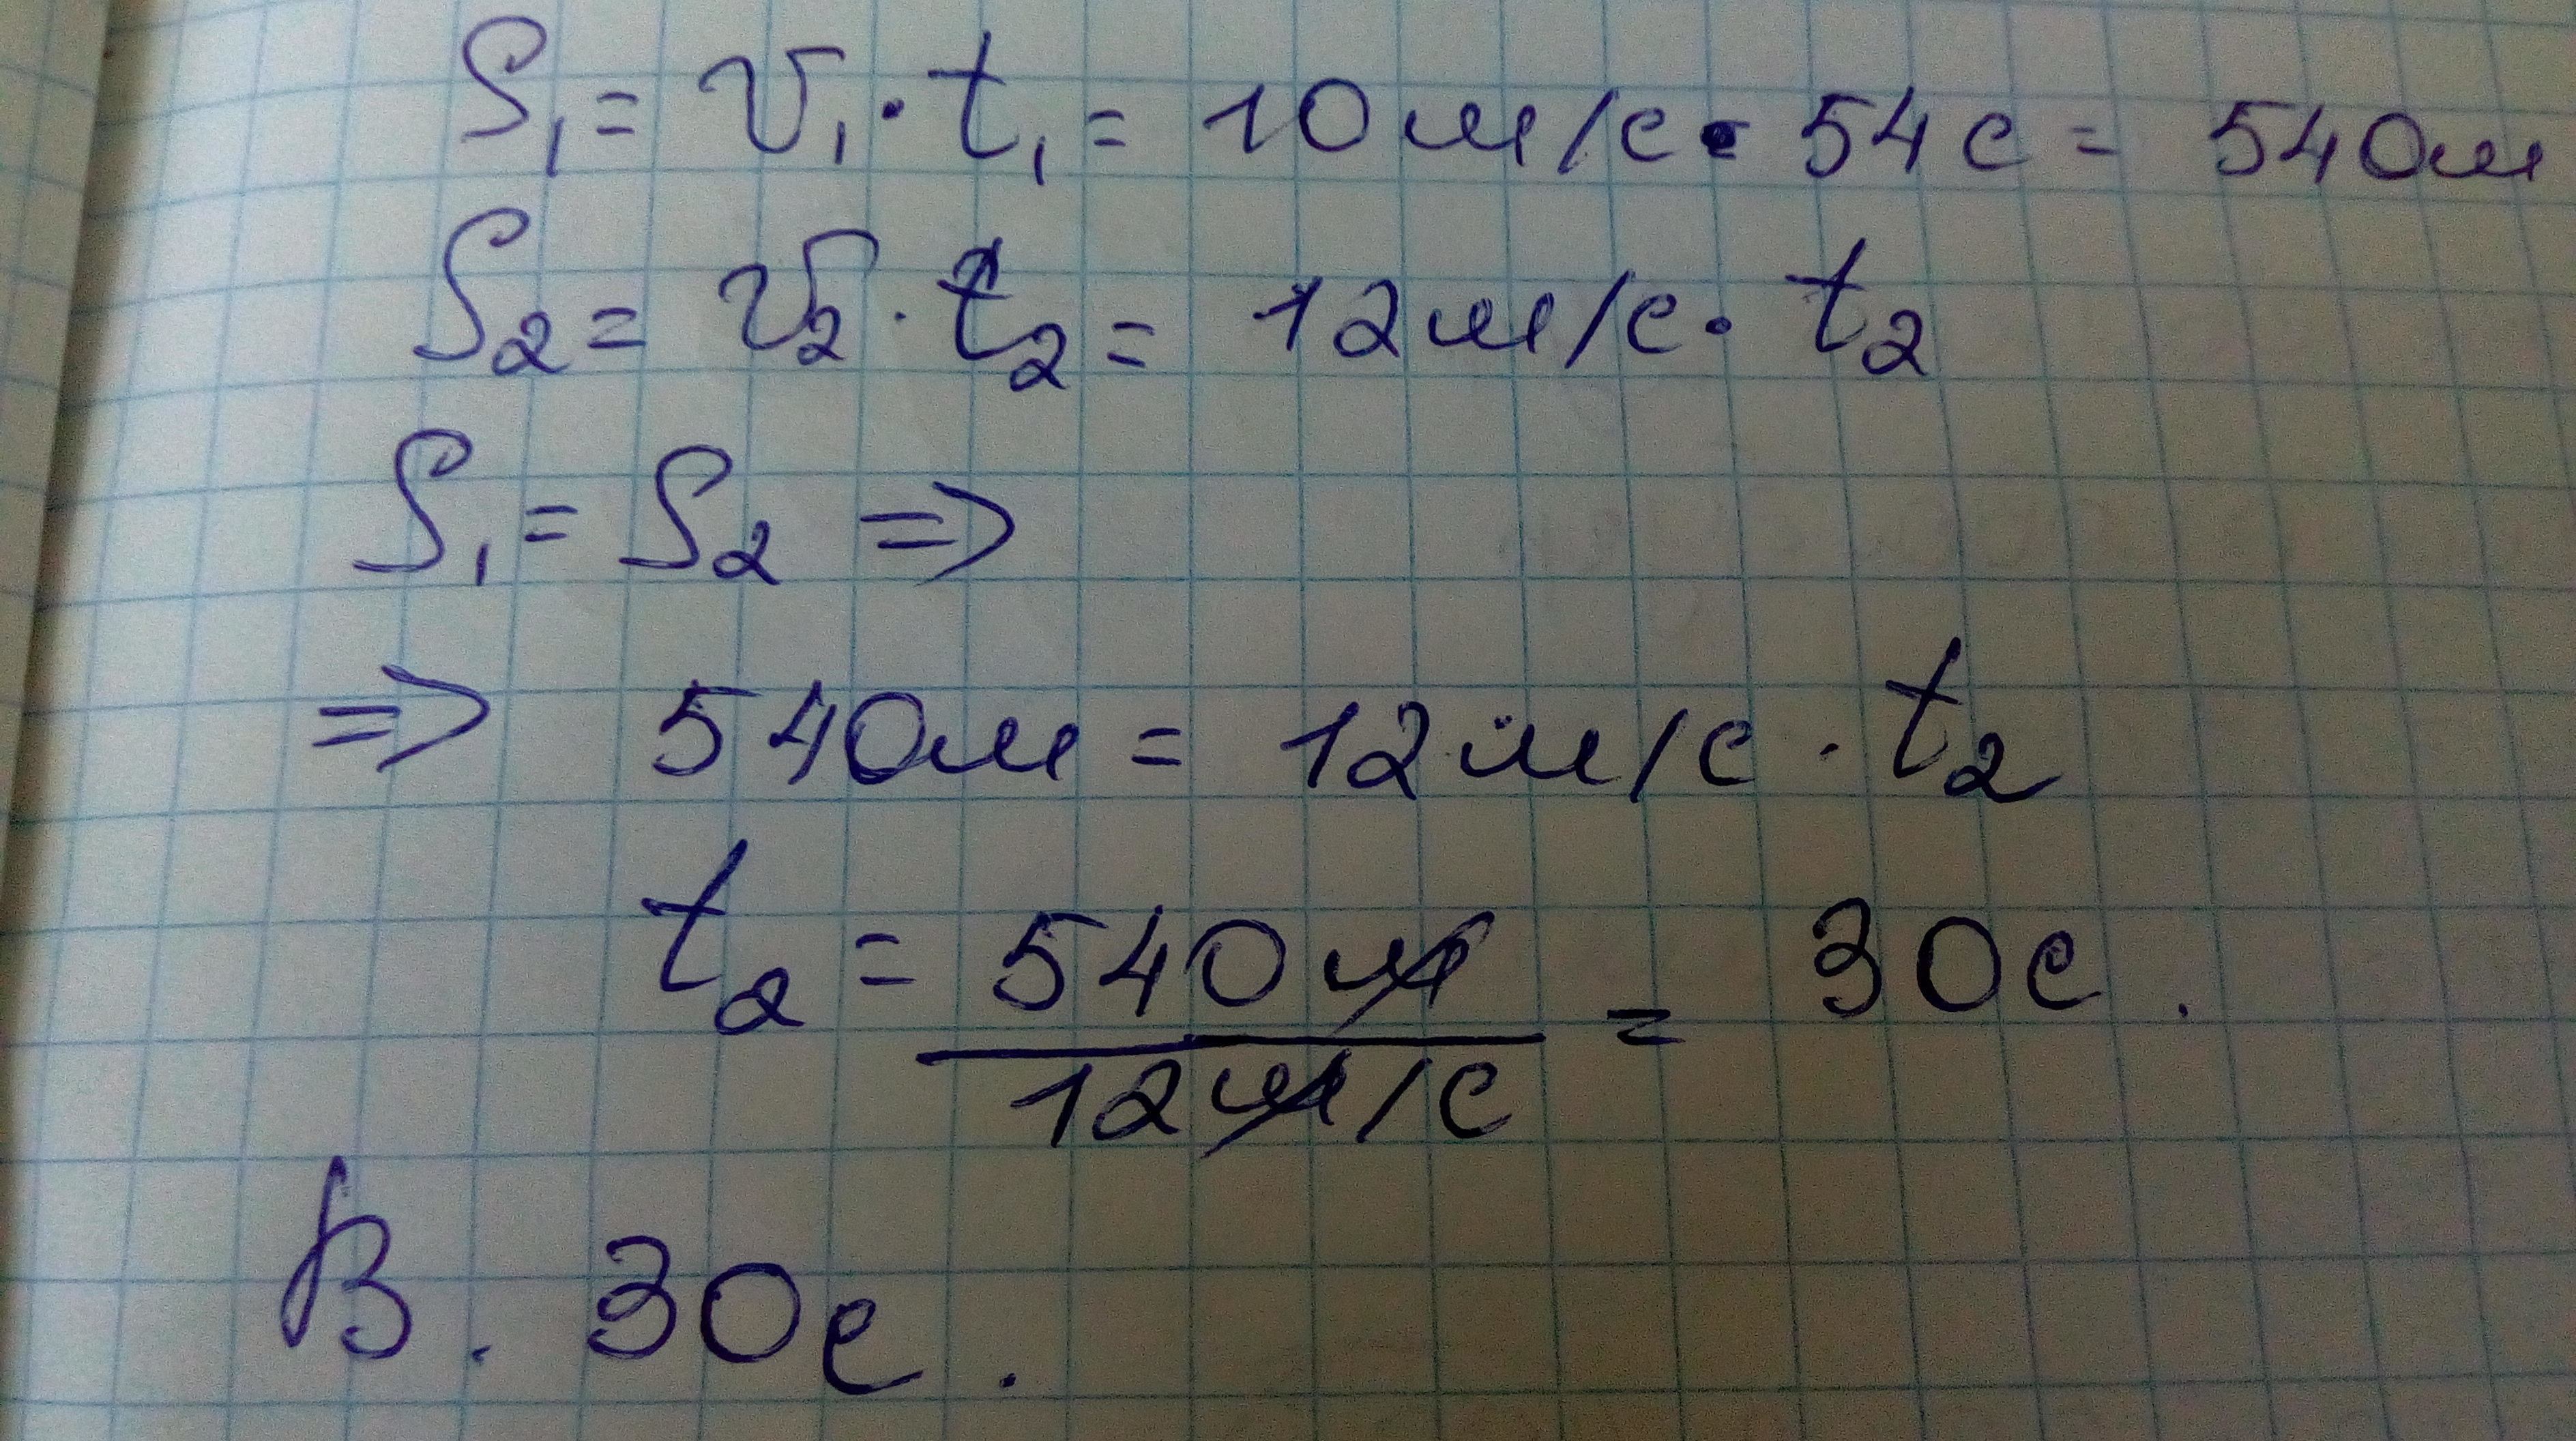 S₁ = v₁ · t₁ = 10 м/с · 54 с = 540м
S₂ = v₂ · t₂ = 12 м/с · t₂
S₁ = S₂ ⇒
⇒ 540м = 12 м/с · t₂
t₂ = 540м / 12м/с = 30с.
В. 30с.